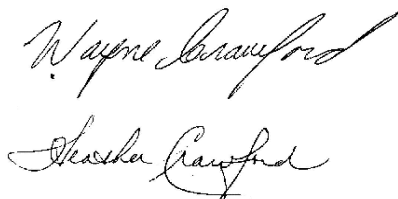 Wayne Crawford
Heather Crawford